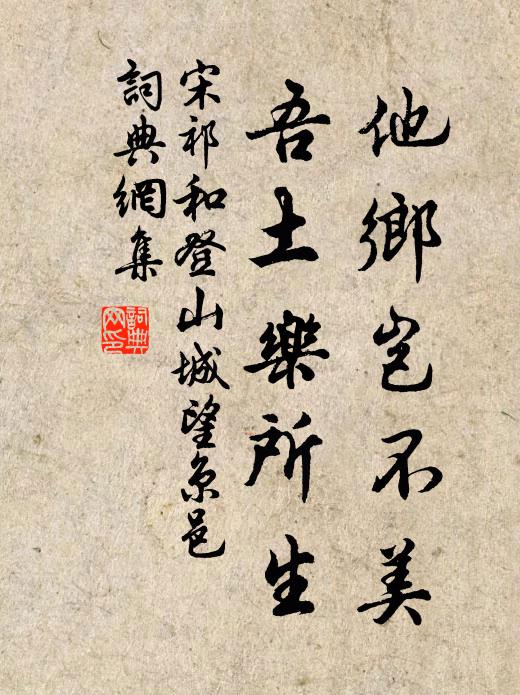 他鄉豈不美
吾土樂所生
宋祁和登山城望京邑
詞典網集
詞典網印